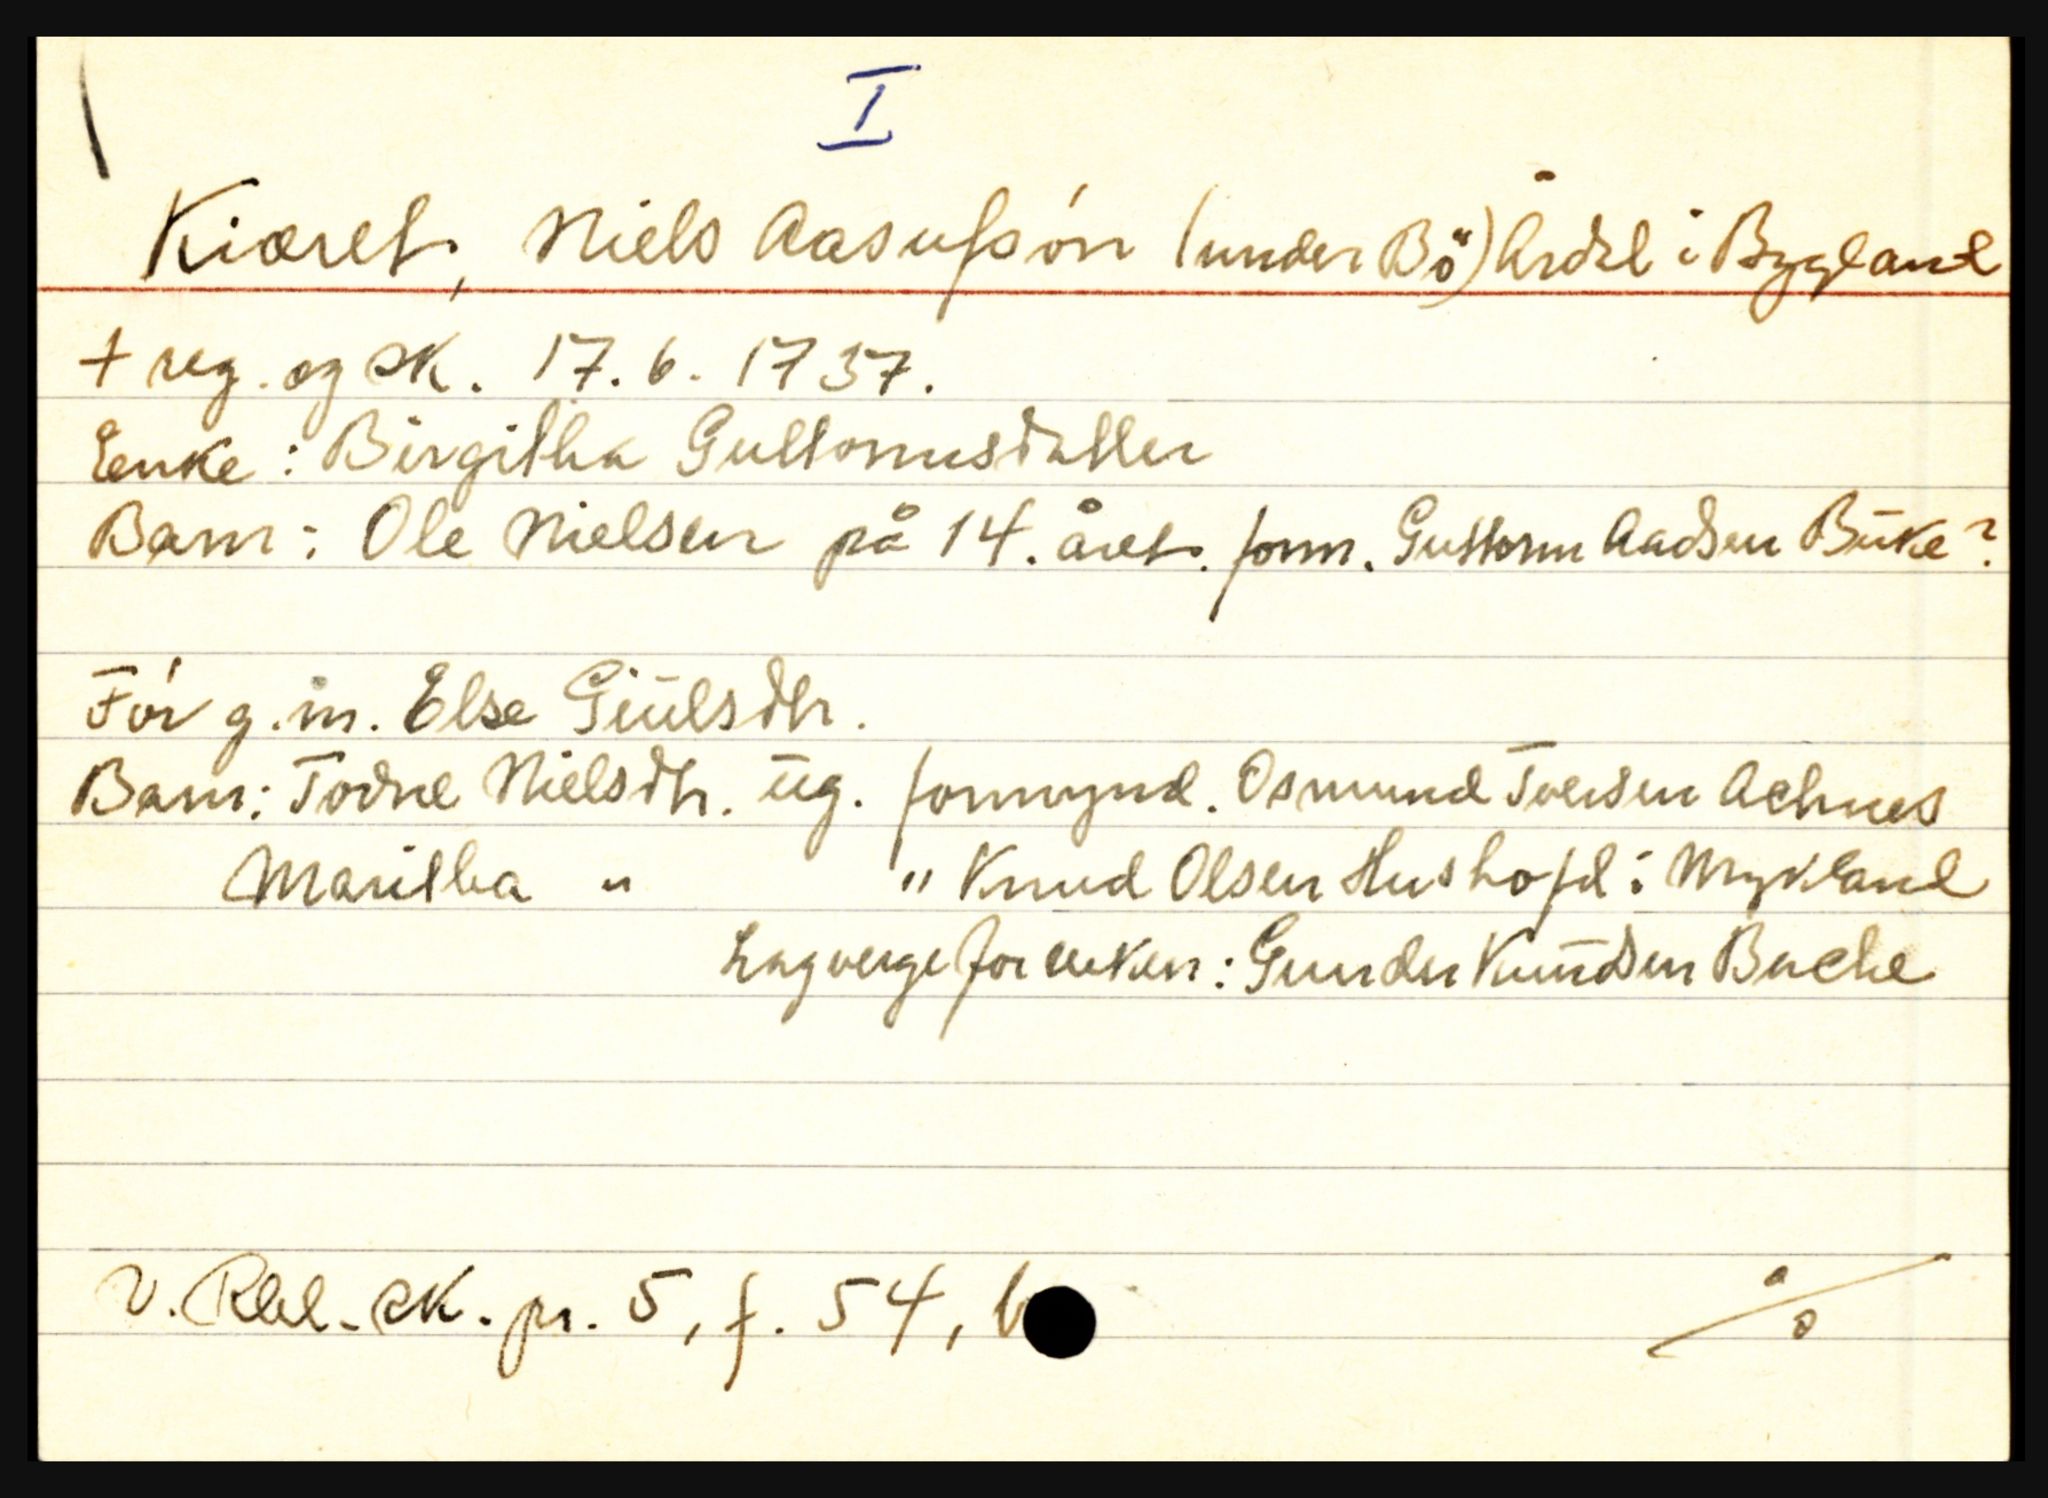 I
Kiæret, Niels Aasufsón (under Bö) Årdal i Bygland
+ reg. og sk. 17.6. 1737.
Eenke : Birgitha Guttormsdatter
Barn : Ole Nielsen på 14. året. form. Guttorm Aadsen Büke ?
Fór g.m. Else Giülsdtr.
Barn: Todne Nielsdtr. üg. formynd. Osmund Tversen Achnes
Maritha " " Knud Olsen Hushofd i Mykland
Lagverge for enken : Gunder Knüdsen Bache
V. Rbl. sk. pr. 5, f. 54, b